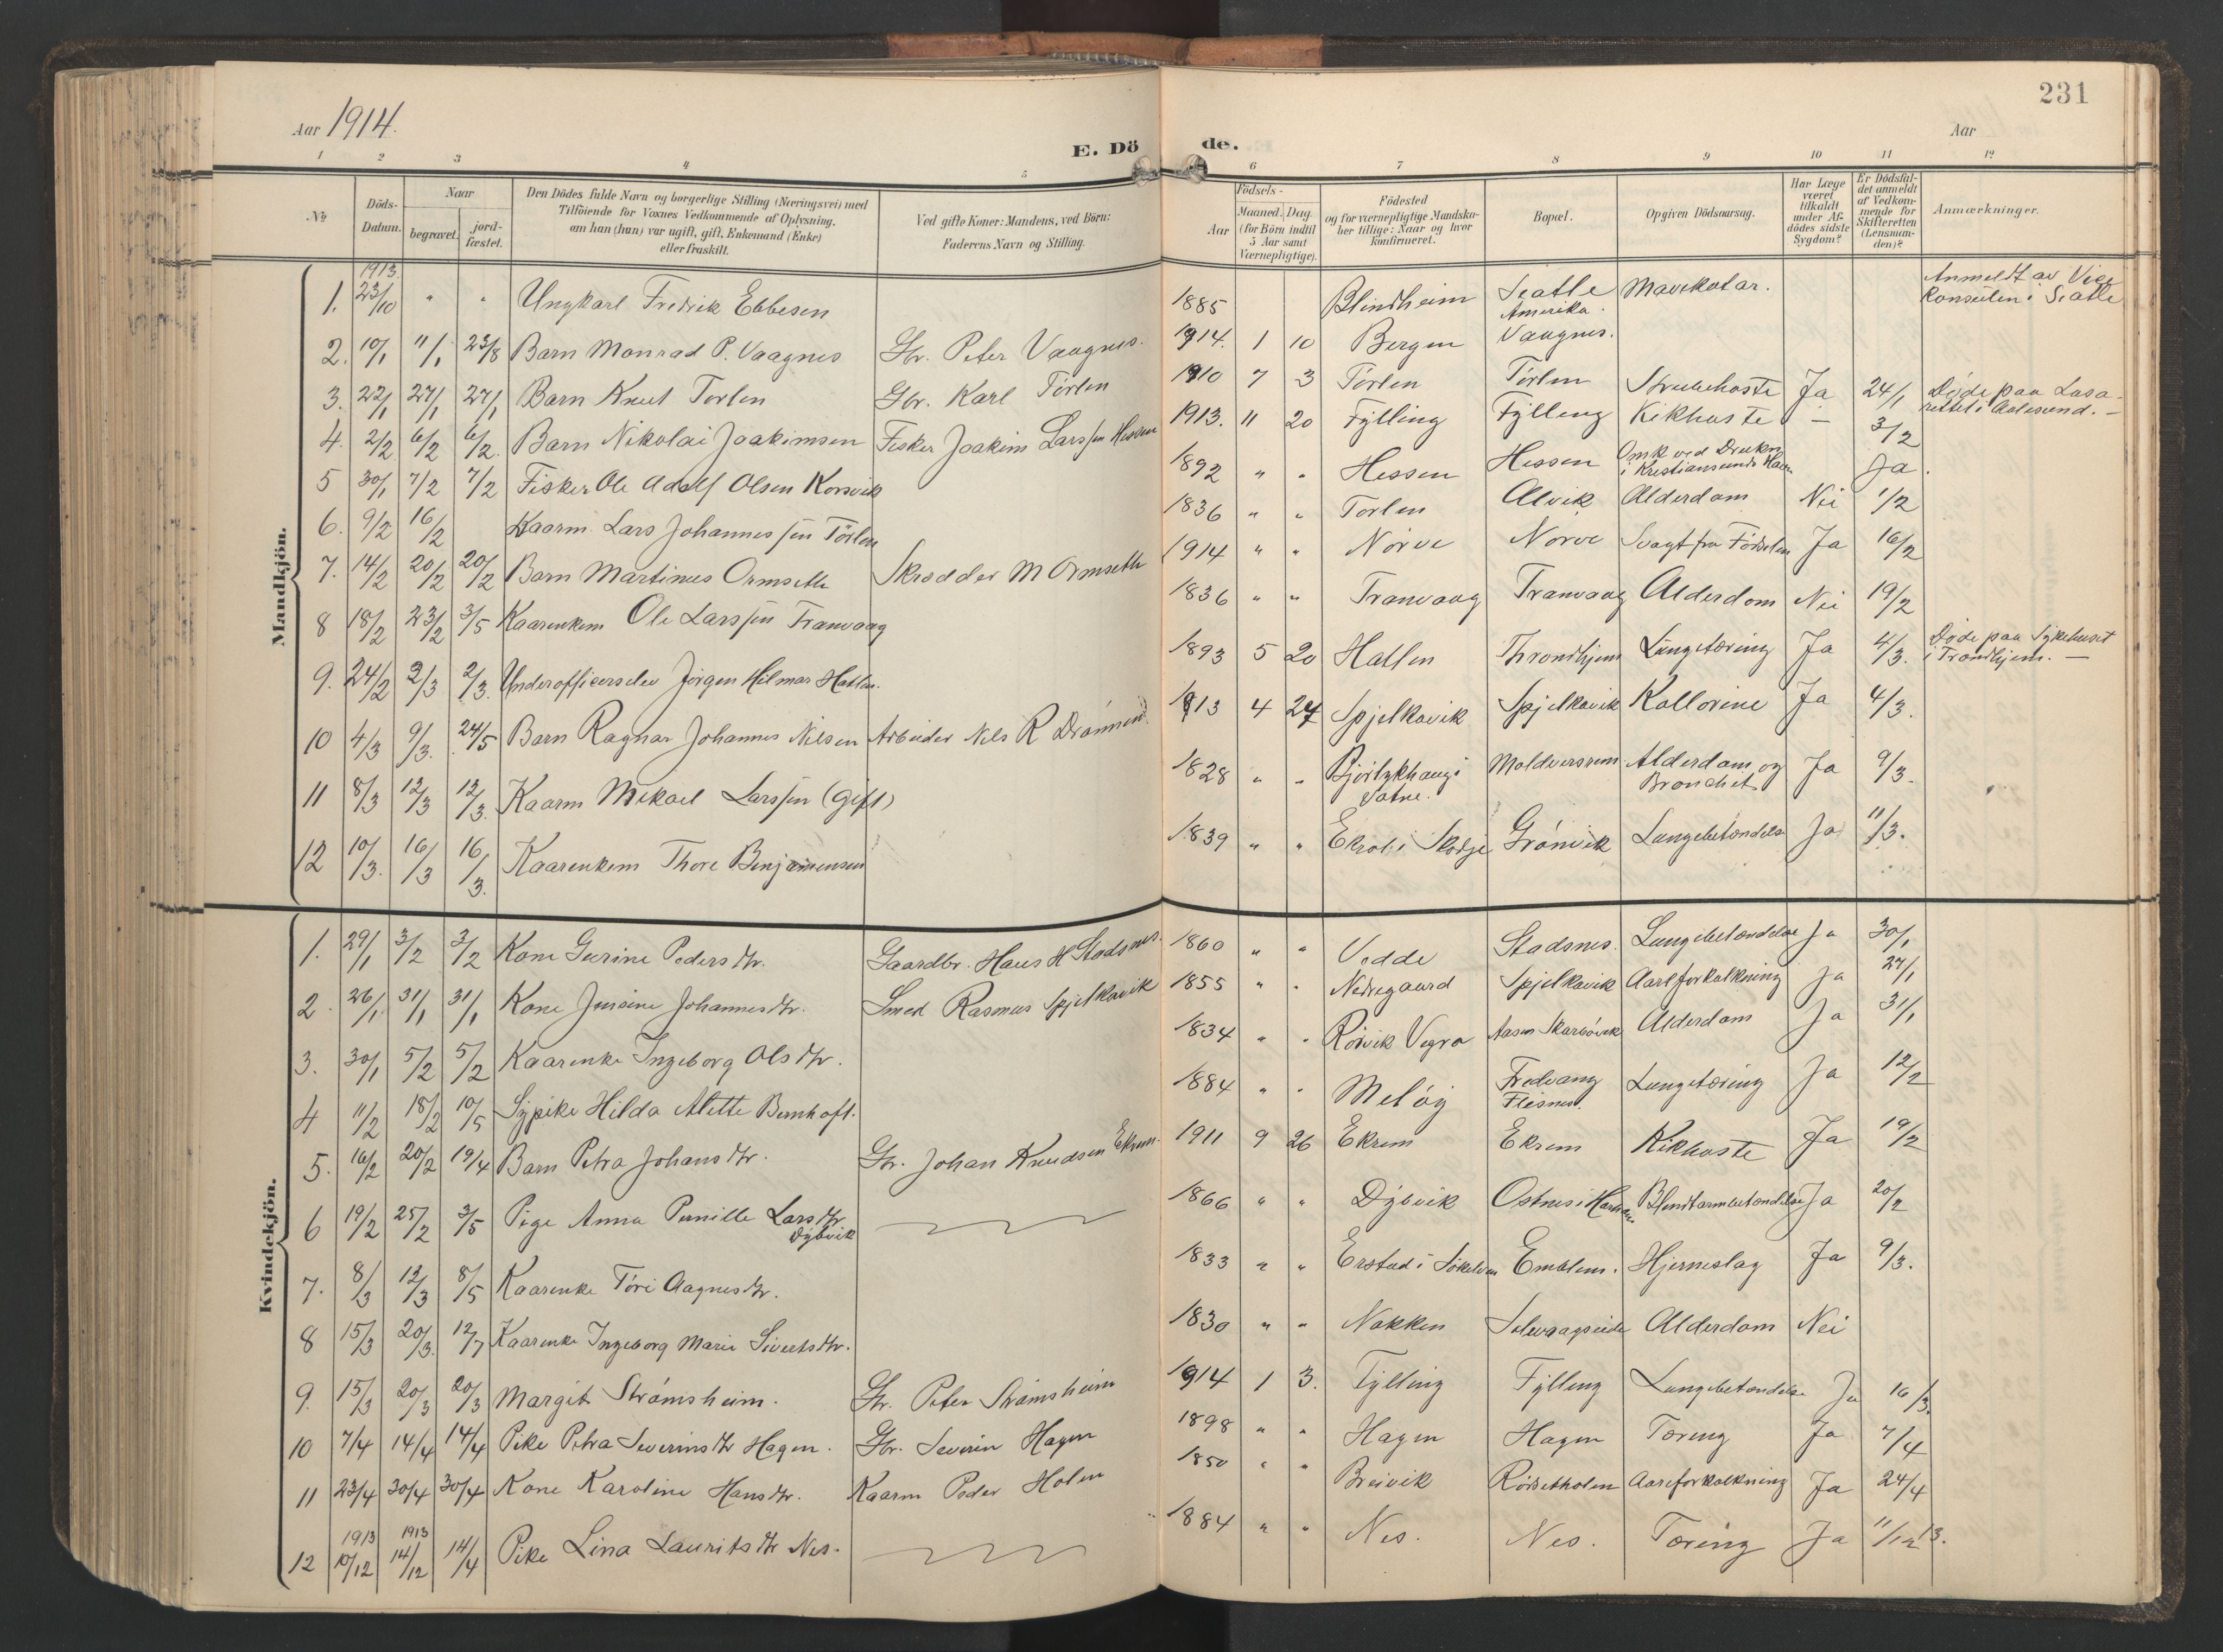 231
Aar 1914.
E. Dö de.
Aar
1 2 3 4 5 6 7 8 9 10 11 12
№
Döds-Datum.
Naar
begravet.
jord-fæstet.
Den Dödes fulde Navn og borgerlige Stilling (Næringsvei) med
Tilföiende for Voxnes Vedkommende af Oplysning,
om han (hun) var ugift, gift, Enkemand (Enke)
eller fraskilt.
Ved gifte Koner: Mandens, ved Börn:
Faderens Navn og Stilling.
Födsels-
Aar
Maaned. Dag.
(for Börn indtil
5 Aar samt
Værnepligtige).
Födested
og for værnepligtige Mandska-
ber tillige: Naar og hvor
konfirmeret.
Bopæl.
Opgiven Dödsaarsag.
Har Læge
været
tilkaldt
under Af-
dödes sidste
Sygdom?
Er Dödsfal-
det anmeldt
af Vedkom-
mende for
Skifteretten
(Lensman-
den)?
Anmærkninger.
Mandkjön.
1. 1913 23/10 " " Ungkarl Fredrik Ebbesen 1885 Blindheim Seatle Amerika. Mavekatar. Anmeldt av Vice Konsulen i Seatle
2. 10/1 11/1 23/8 Barn Monrad P. Vaagnes Gbr. Peter Vaagnes. 1914. 1 10 Bergen Vaagnes.
3. 22/1 27/1 27/1 Barn Knut Torlen Gbr. Karl Törlen 1910 7 3 Törlen Törlen Strubehoste Ja 24/1 Døde paa Lasa-rettet i Aalesund. —
4. 2/2 6/2 6/2. Barn Nikolai Joakimsen Fisker Joakim Larssen Hessen 1913. 11 20 Fylling Fylling Kikhoste — 3/2
5 30/1 7/2 7/2 Fisker Ole Adolf Olsen Korsvik 1892 " " Hessen Hessen Omk ved Drukn i Kristiansunds Havn Ja.
6. 9/2 16/2 Kaarm. Lars Johannessen Törlen 1836 " " Torlen Alvik Alderdom Nei 1/2
7. 14/2 20/2 20/2 Barn Martinus Ormseth Skrædder M Ormseth 1914 " " Nörve Nörve Svagt fra Födselen Ja 16/2
8 18/2 23/2 3/5 Kaarenkem Ole Larssen Tranvaag 1836 " " Tranvaag Tranvaag Alderdom Nei 19/2
9. 24/2 2/3 2/3. Underofficerselev Jörgen Hilmar Hatlen. 1893 5 20 Hatlen Throndhjem Lungetæring Ja 4/3. Døde paa Sykehuset i Trondhjem. —
10 4/3 9/3. 24/5 Barn Ragnar Johannes Nilsen Arbeider Nils R Drönnen 1913 4 27 Spjelkavik Spjelkavik Kallorine Ja 4/3.
11 8/3 12/3 12/3. Kaarm Mikael Larssen (gift) 1828 " " Vatne. Alderdom og Bronchit Ja 9/3.
12 10/3. 16/3 16/3. Kaarenkem Thore Benjaminsen 1839 " " Skodje Grönvik Lungebetændelse Ja 11/3.
Kvindekjön.
1. 29/1 3/2 3/2 Kone Gurine Pedersdtr. Gaardbr. Hans H Stadsnes. 1860 " " Vedde Stadsnes. Lungebetændelse Ja 30/1
2. 26/1 31/1 31/1 Kone Jensine Johannesdtr. Smed Rasmus Spjelkavik 1855 " " Nedregaard Spjelkavik Aareforkalkning Ja 27/1
3. 30/1 5/2 5/2 Kaarenke Ingeborg Olsdtr. 1834 " " Rörvik Vigra Aasen Skarbövik Alderdom Ja 31/1
4 11/2 18/2 10/5 Sypike Hilda Alette Bernhoft. 1884 " " Melöy Fredvang Flisnes. Lungetæring Ja 12/2
5. 16/2 20/2 19/4 Barn Petra Johansdtr. Gbr. Johan Knudsen Ekrem 1911 9 26 Ekrem Ekrem Kikhoste Ja 19/2
6 19/2 25/2 3/5 Pige Anna Pernille Larsdtr Dybvik 1866 " " Dybvik Ostnes i Haram Blindtarmbetændelse Ja 20/2
7. 8/3 12/3 8/5 Kaarenke Töri Aagnesdtr. 1833 " " Erstad i Sökelven Emblem. Hjerneslag Ja 9/3.
8 15/3 20/3. 12/7 Kaarenke Ingeborg Marie Sivertsdtr. 1830 " " Nakken Solevaagseide Alderdom Nei
9. 15/3 20/3 20/3 Margit Strömsheim. Gbr. Peter Strömsheim 1914 1 3. Fylling Fylling Lungebetændelse Ja 16/3.
10 7/4 14/4 14/4 Pike Petra Severinsdtr Hagen. Gbr. Severin Hagen 1898 " " Hagen Hagen Tæring Ja 7/4
11 23/4 30/4 30/4 Kone Karoline Hansdtr. Kaarm Peder Holen 1850 " " Breivik Rödsetholen Aareforkalkning Ja 24/4
12 1913 10/12 1913 14/12 14/4 Pike Lina Lauritsdtr Nes. 1884 " " Nes. Nes. Tæring Ja 11/12 13.